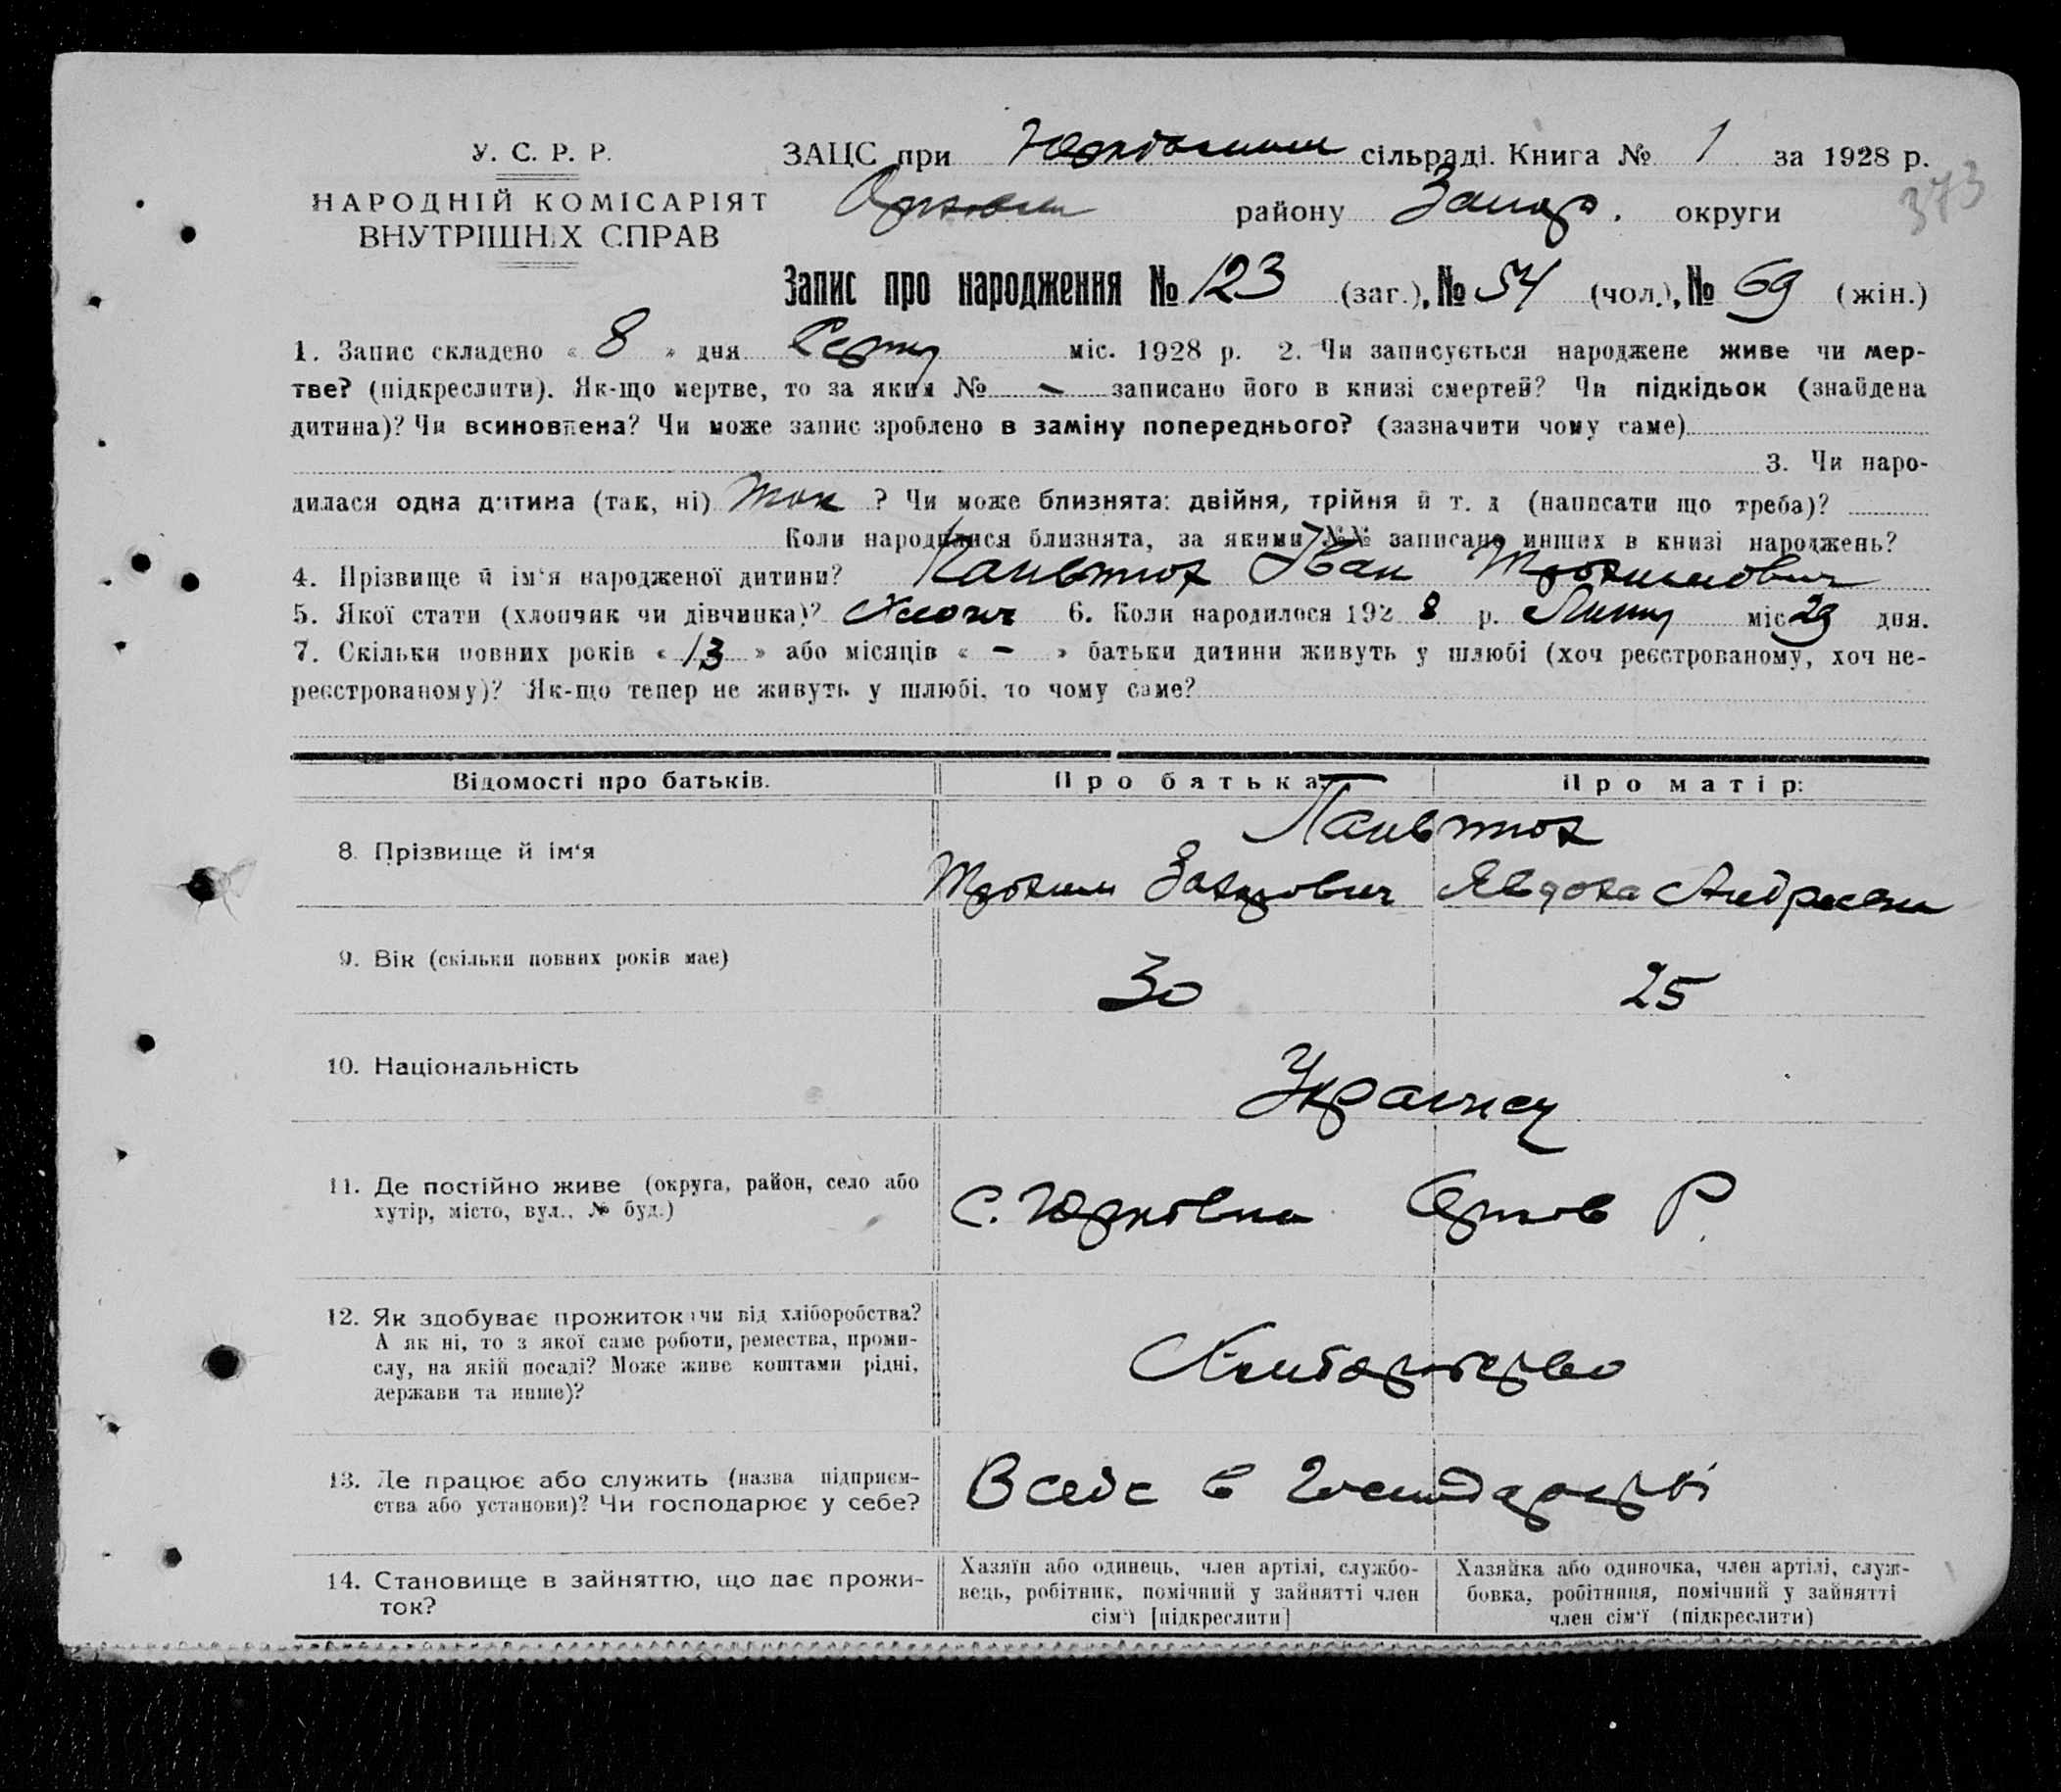 У. С. Р. Р.
НАРОДНІЙ КОМІСАРІЯТ
ВНУТРІШНІХ СПРАВ
ЗАЦС при сільраді. Книга № 1 за 1928 р.
району Запор. округи
373
Запис про народження № 123 (заг.), № 54 (чол.), № 69 (жін.)
1. Запис складено « 8 » дня Серпн міс. 1928 р. 2. Чи записується народжене живе чи мер-
тве? (підкреслити). Як-що мертве, то за яким № - записано його в книзі смертей? Чи підкідьок (знайдена
дитина)? Чи всиновлена? Чи може запис зроблено в заміну попереднього? (зазначити чому саме)
3. Чи наро-
дилася одна дитина (так, ні) так ? Чи може близнята: двійня, трійня й т. д (написати що треба)?
Коли народилися близнята, за якими №№ записано инших в книзі народжень?
4. Прізвище й ім'я народженої дитини? Іван Трохимович
5. Якої стати (хлопчик чи дівчинка)? Хлопч 6. Коли народилося 1928 р. Липн міс 29 дня.
7. Скільки повних років « 13 » або місяців « - » батьки дитини живуть у шлюбі (хоч реєстрованому, хоч не-
реєстрованому)? Як-що тепер не живуть у шлюбі, то чому саме?
Відомості про батьків. Про батька: Про матір:
8. Прізвище й ім'я
Трохим Захарович Явдоха Андреевна
9. Вік (скільки повних років має) 30 25
10. Національність Украинец
11. Де постійно живе (округа, район, село або
хутір, місто, вул., № буд.)
с. Юрковка Орехов Р.
12. Як здобуває прожиток чи від хліборобства?
А як ні, то з якої саме роботи, ремества, проми-
слу, на якій посаді? Може живе коштами рідні,
держави та инше)?
13. Де працює або служить (назва підприєм-
ства або установи)? Чи господарює у себе?
В себе в господарстві
14. Становище в зайняттю, що дає прожи-
ток?
Хазяїн або одинець, член артілі, службо-
вець, робітник, помічний у зайнятті член
сім'ї [підкреслити]
Хазяйка або одиночка, член артілі, служ-
бовка, робітниця, помічний у зайнятті
член сім'ї (підкреслити)